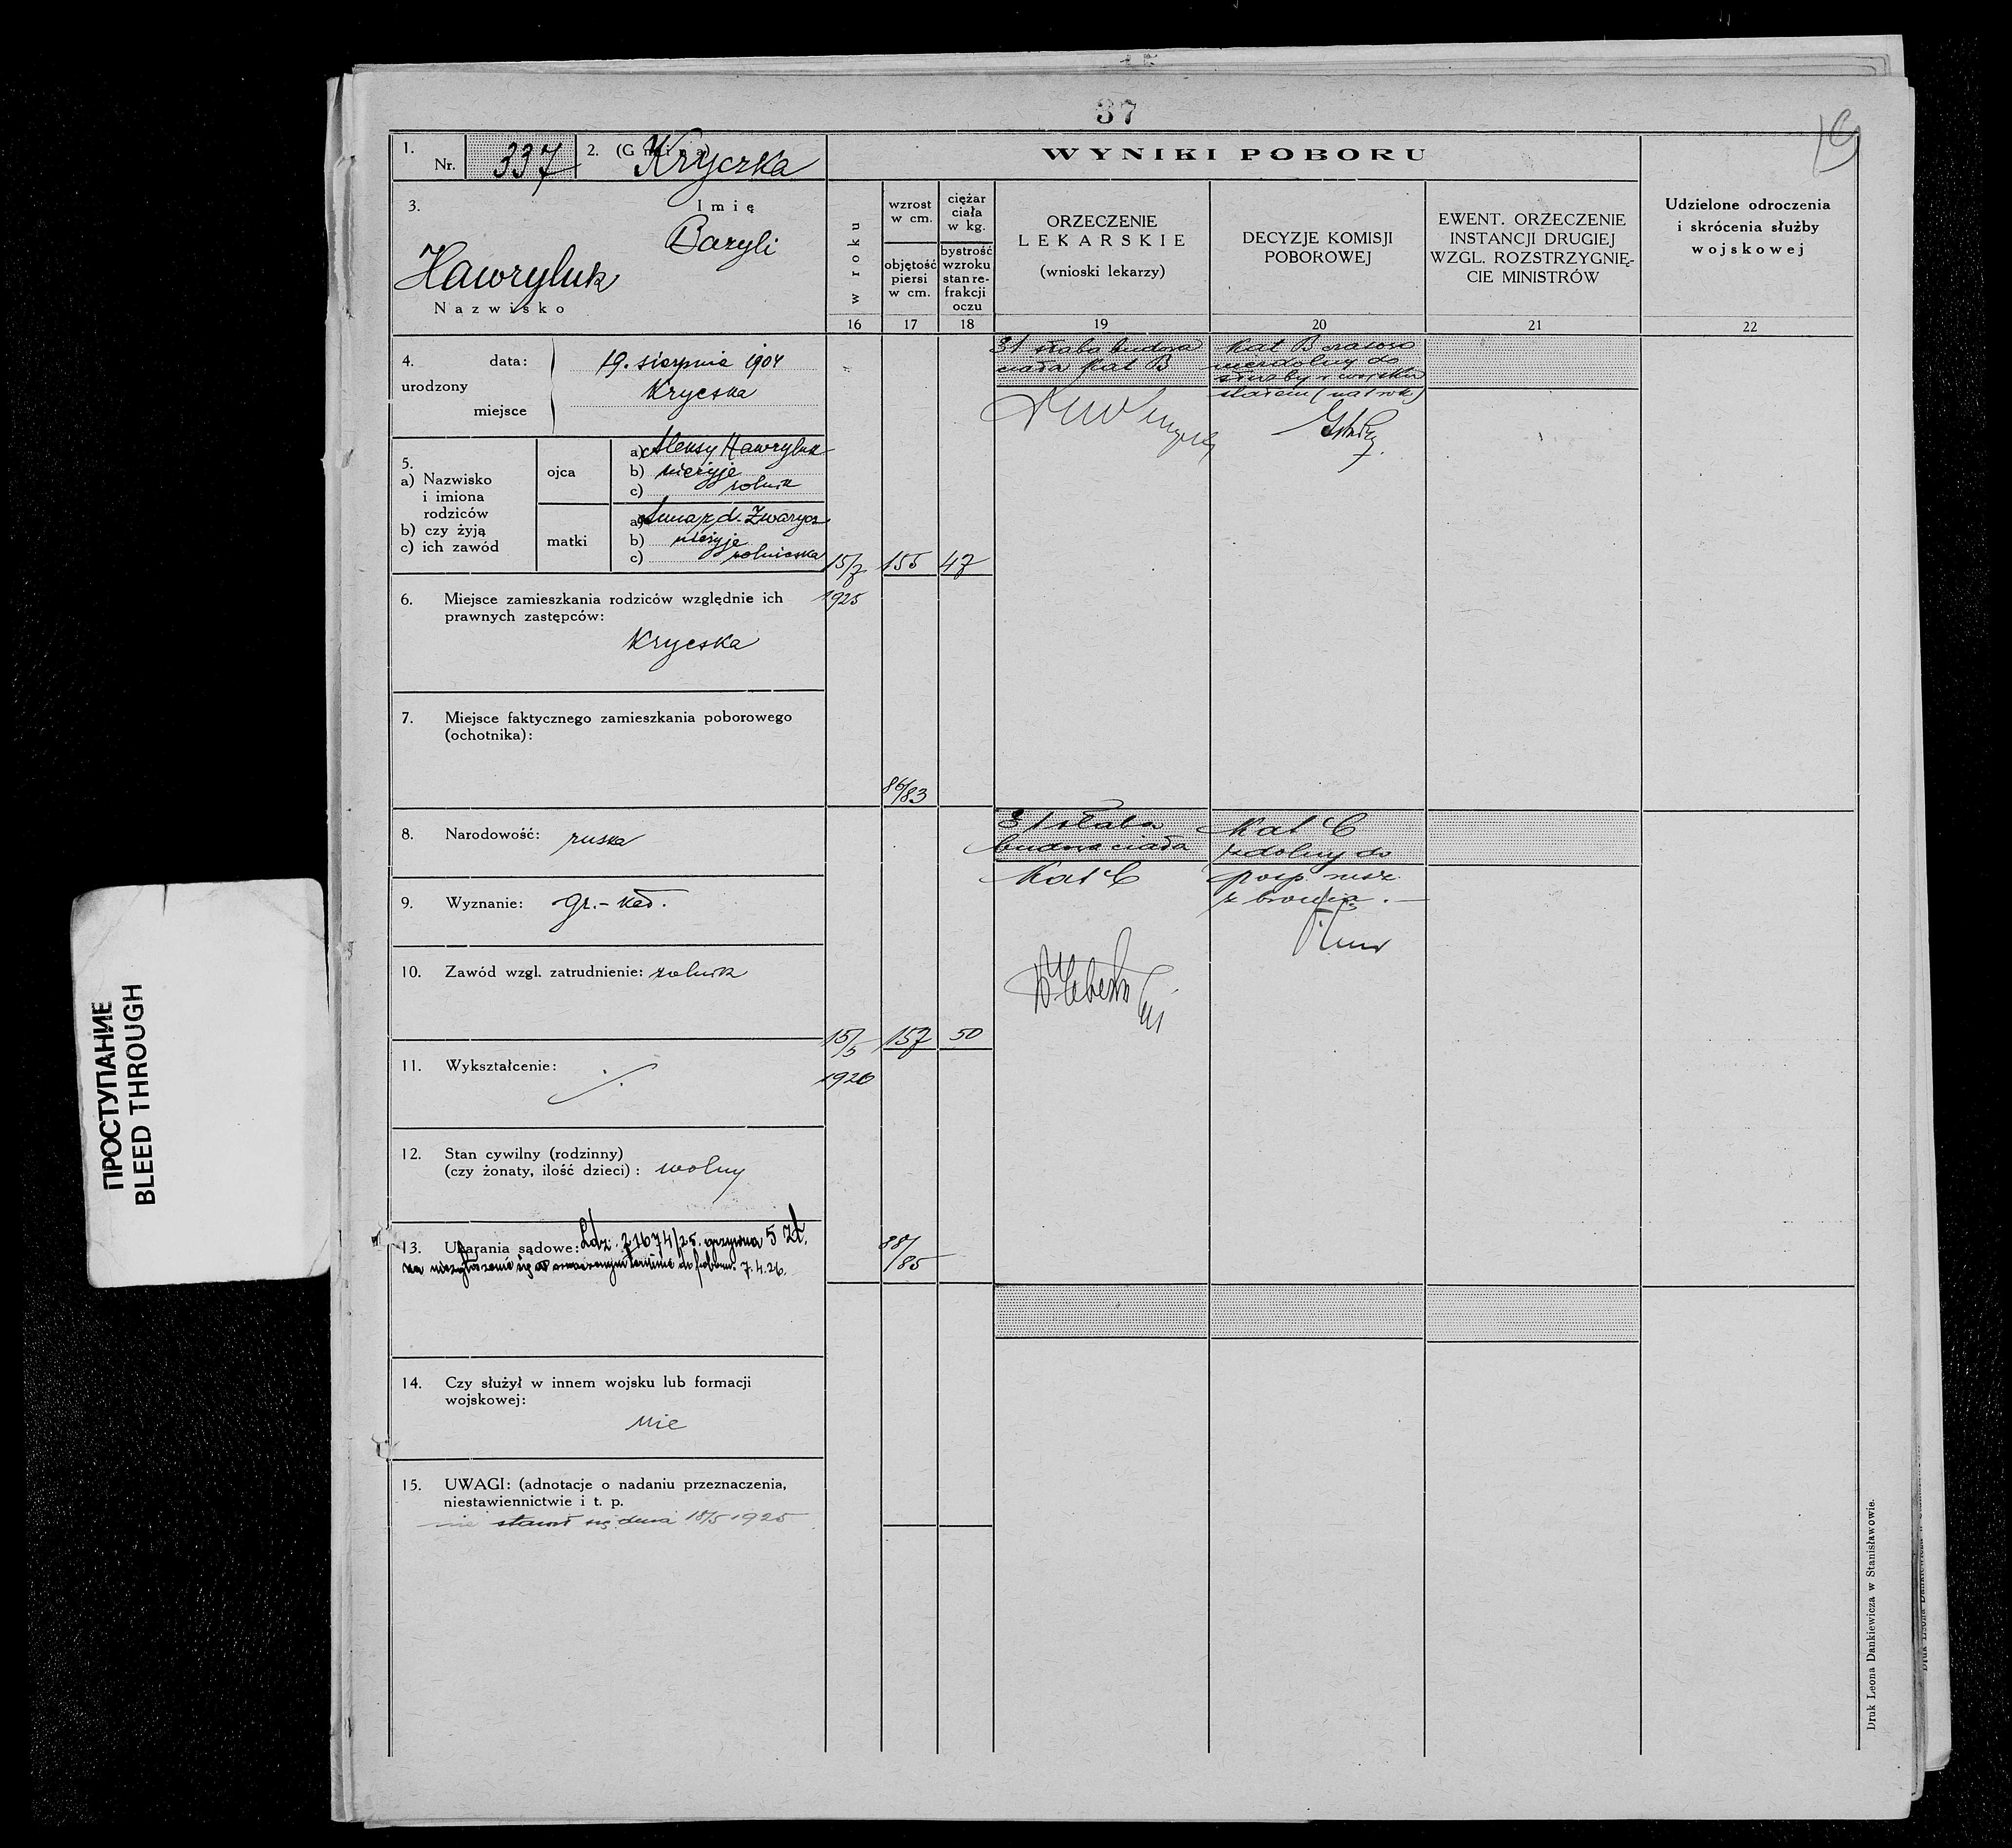 37
1. Nr. 337
2. (Gmina) Kryczka
3. Imię
Bazyli
Hawryluk
Nazwisko
4. urodzony
data: 19. sierpnia 1904
miejsce Kryczka
5.
a) Nazwisko
i imiona
rodziców
b) czy żyją
c) ich zawód
ojca
a) Aleksy Hawryluk
b) nieżyje
c) rolnik
matki
a) z d. Zwarycz
b) nieżyje
c) rolniczka
6. Miejsce zamieszkania rodziców względnie ich
prawnych zastępców:
Kryczka
7. Miejsce faktycznego zamieszkania poborowego
(ochotnika):
8. Narodowość: ruska
9. Wyznanie: gr.-kat.
10. Zawód wzgl. zatrudnienie: rolnik
11. Wykształcenie: ./.
12. Stan cywilny (rodzinny)
(czy żonaty, ilość dzieci): wolny
13. Ukarania sądowe: grzywna 5 zł.
za niezgłoszenie się do poboru. 7.4.26.
14. Czy służył w innem wojsku lub formacji
wojskowej:
nie
15. UWAGI: (adnotacje o nadaniu przeznaczenia,
niestawiennictwie i t. p.
nie stawił się dnia 18/5 1925
WYNIKI POBORU
w roku
16
wzrost
w cm.
objętość
piersi
w cm.
17
ciężar
ciała
w kg.
bystrość
wzroku
stan re-
frakcji
oczu
18
ORZECZENIE
LEKARSKIE
(wnioski lekarzy)
19
DECYZJE KOMISJI
POBOROWEJ
20
EWENT. ORZECZENIE
INSTANCJI DRUGIEJ
WZGL. ROZSTRZYGNIĘ-
CIE MINISTRÓW
21
Udzielone odroczenia
i skrócenia służby
wojskowej
22
15/7 155 47
1925
86/83
31 słaba budowa
ciała Kat B
Kat B czasowo
niezdolny do
służby w wojsku
stałem (na 1 rok)
15/5 157 50
1926
88/85
31 słaba
budowa ciała
Kat C
Kat C
zdolny do
posp. rusz.
z bronią.
Druk Leona Dankiewicza w Stanisławowie.
ПРОСТУПАНИЕ
BLEED THROUGH